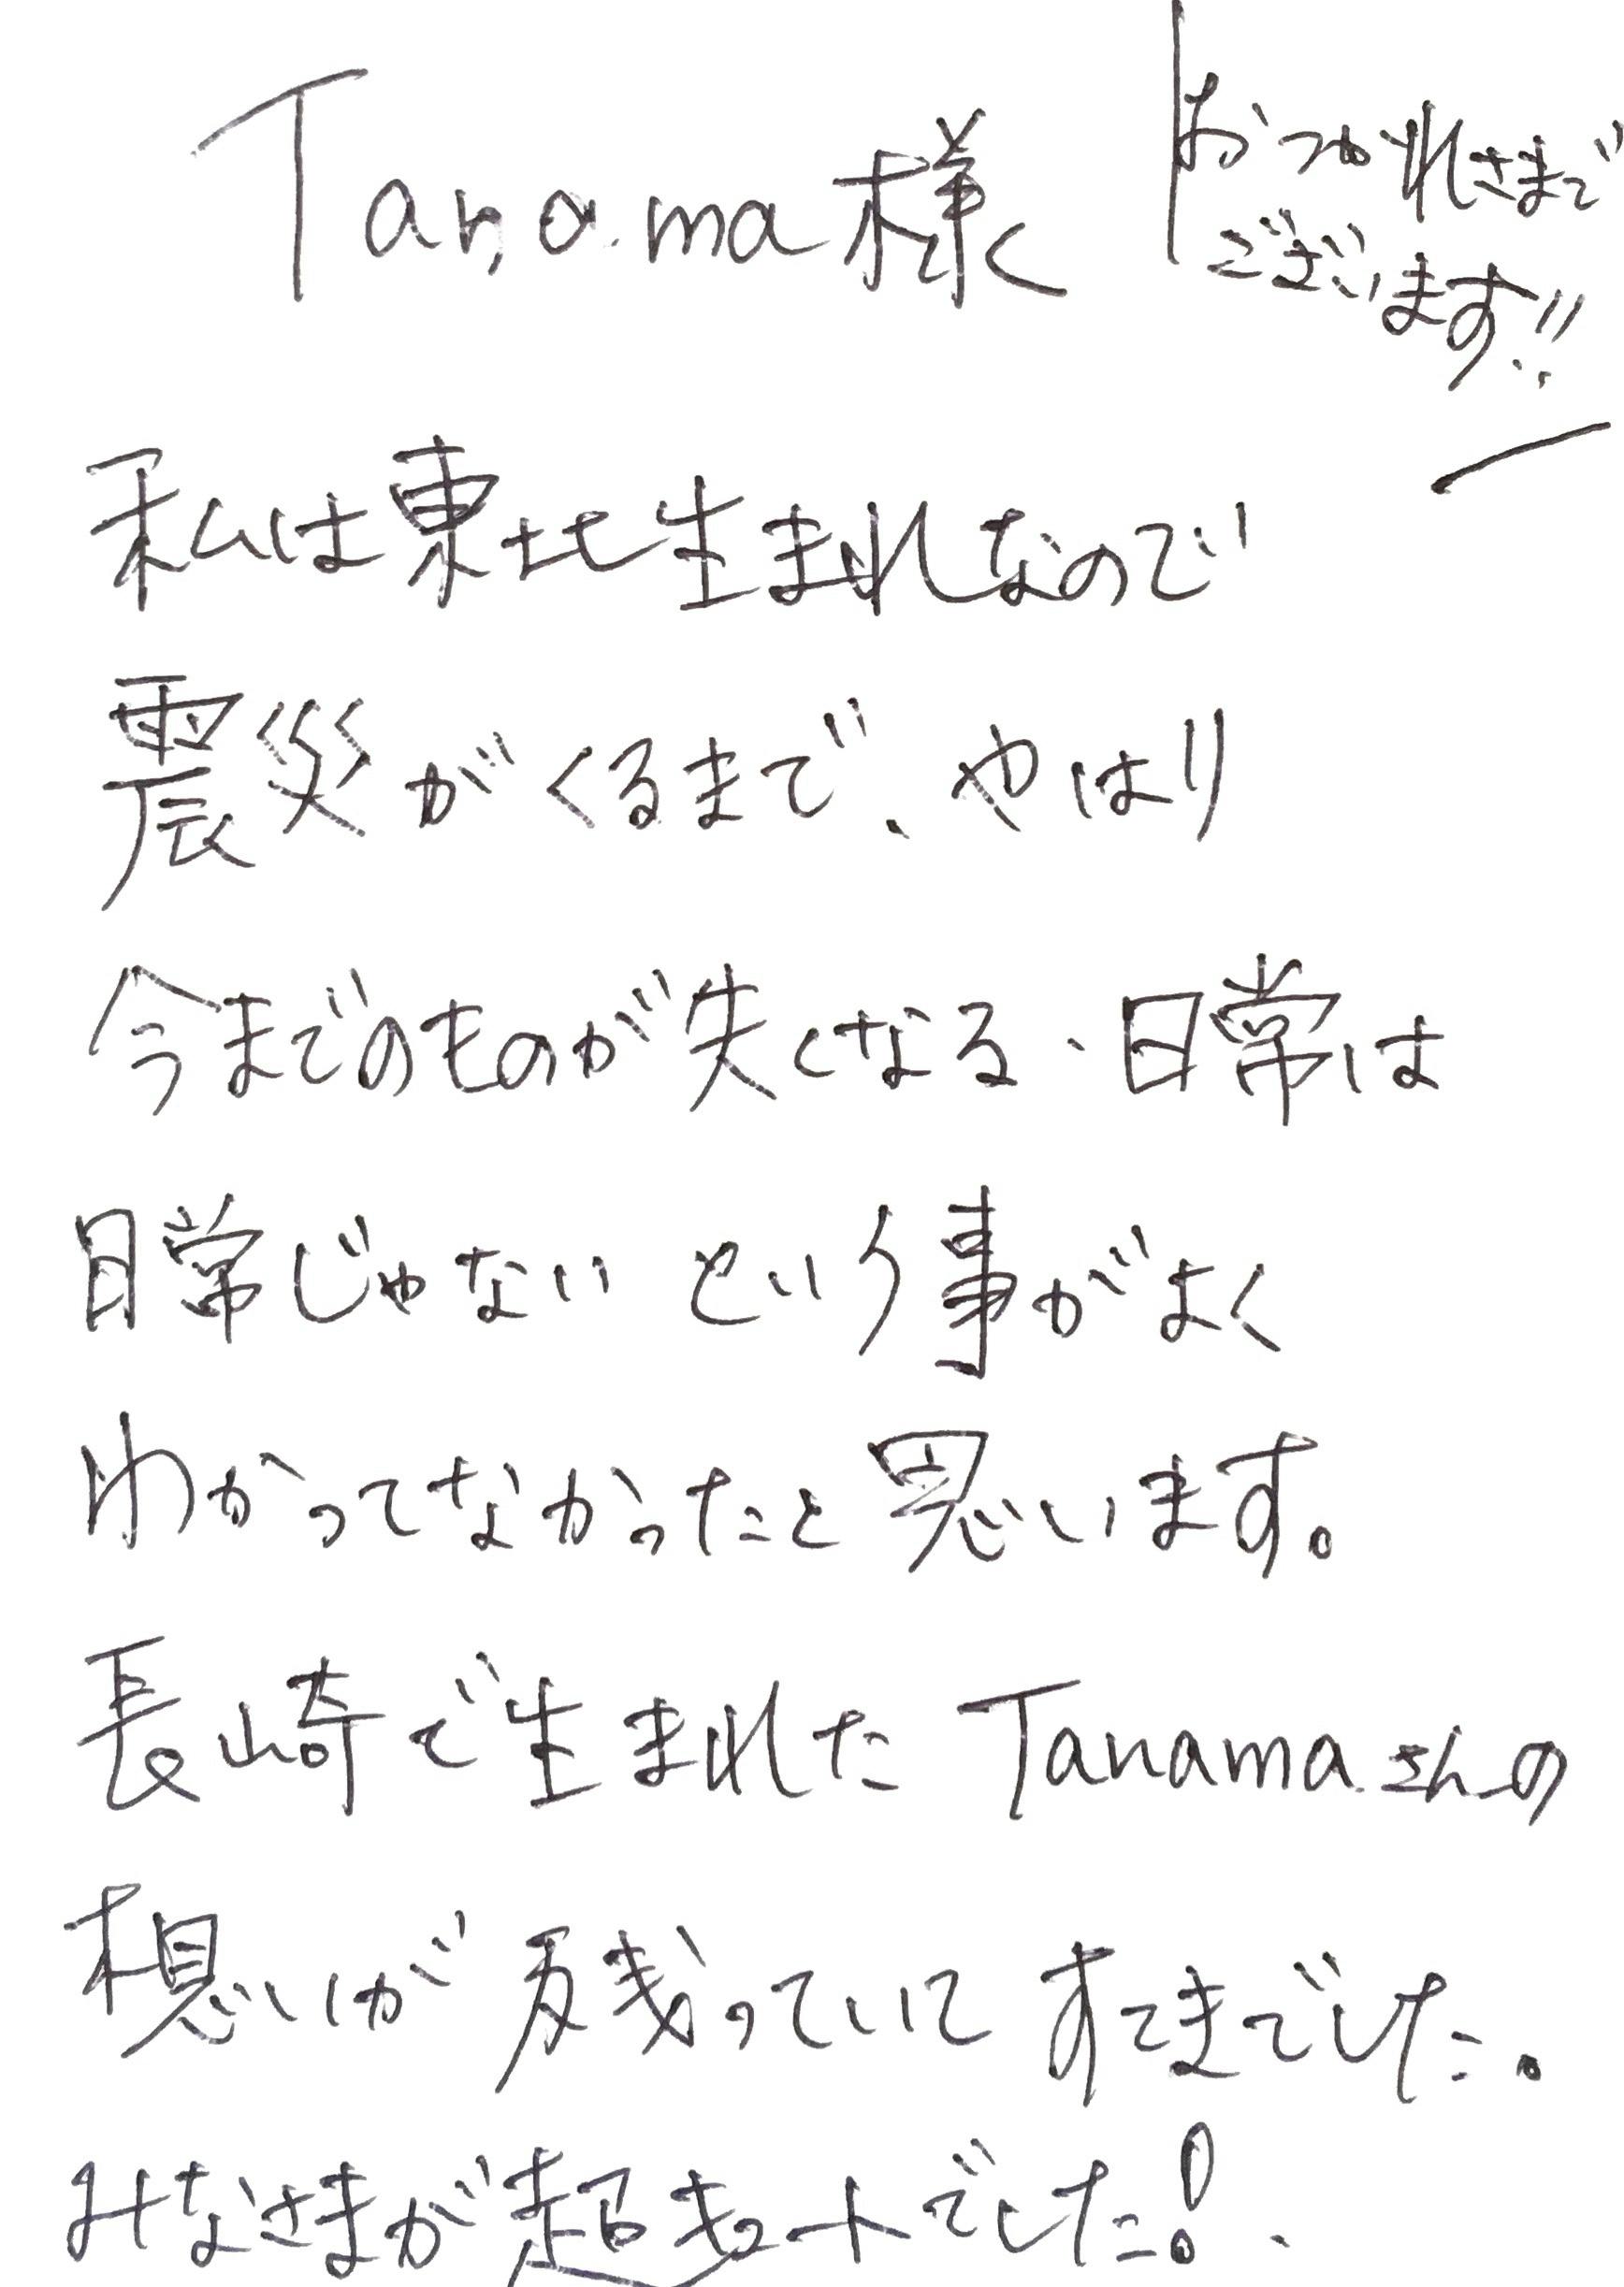 Tanama様
おつかれさまで
ございます!!
私は東北生まれなので
震災がくるまで、やはり
今までのものが失くなる、日常は
日常じゃないという事がよく
わかってなかったと思います。
長崎で生まれたTanamaさんの
想いが残っていてすてきでした。
みなさまが超キュートでした!